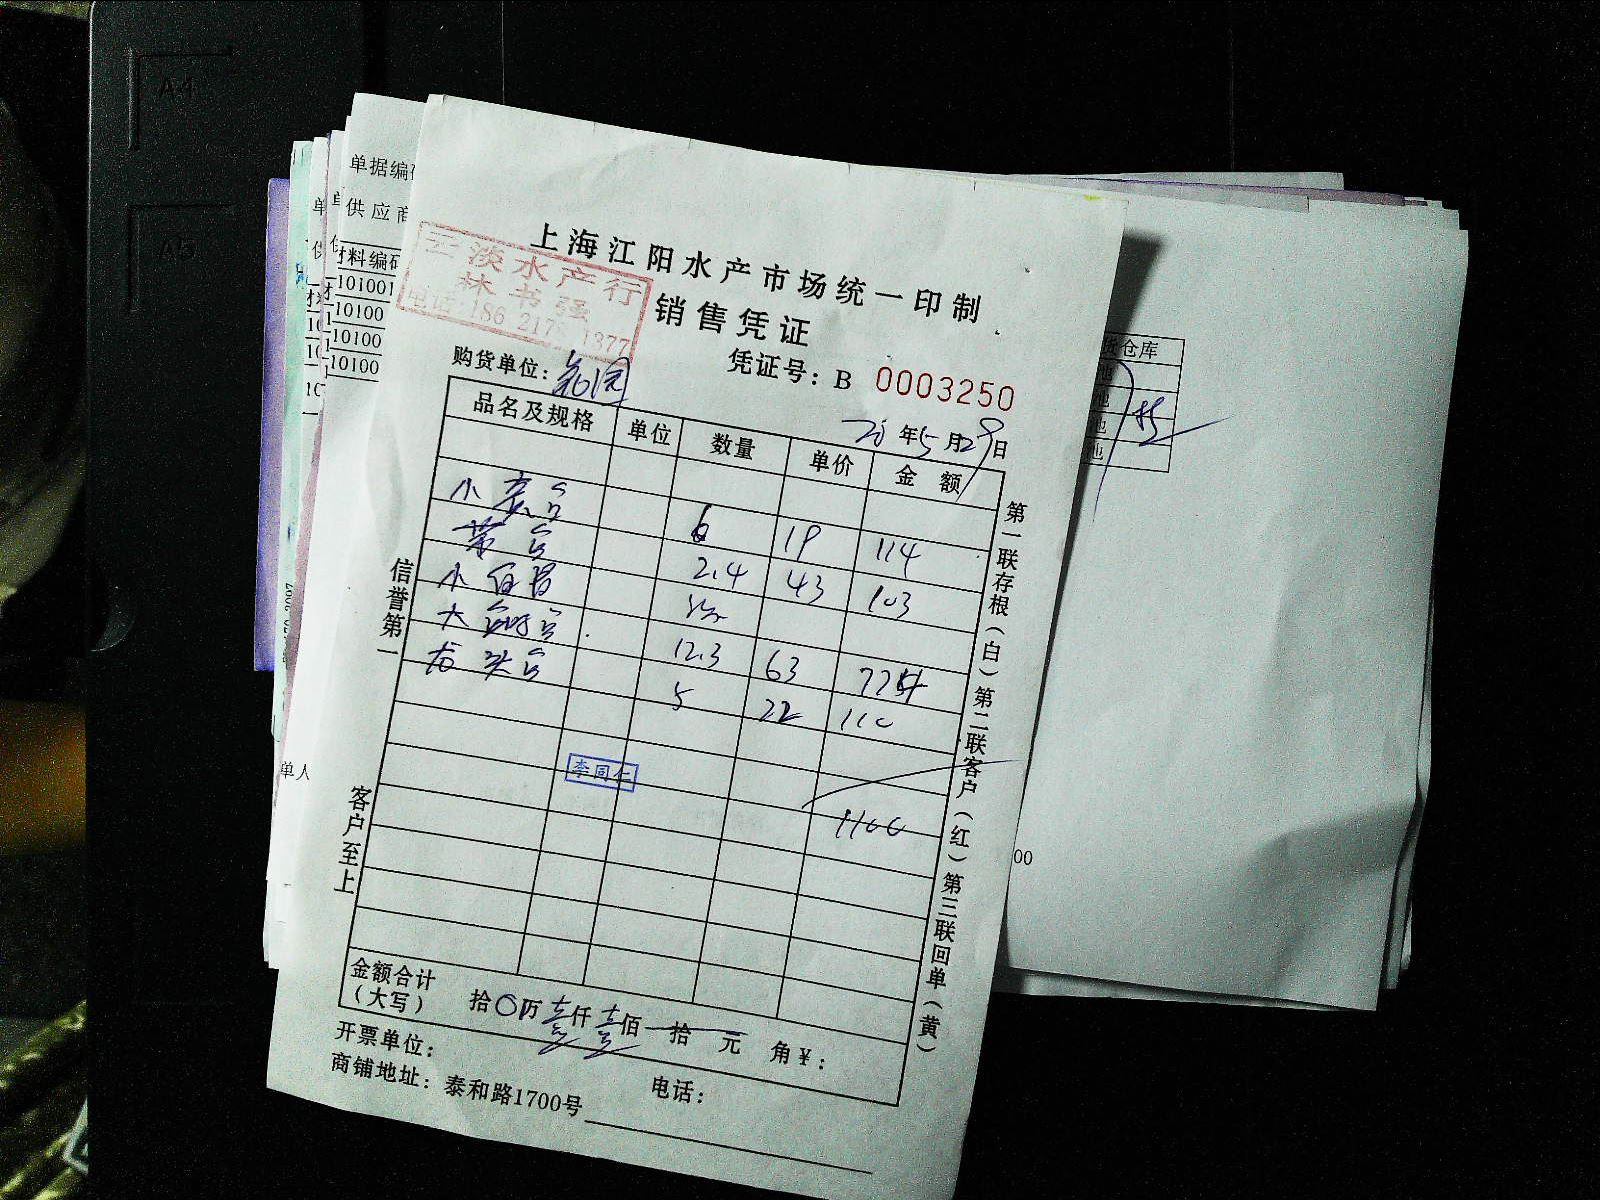 A4
A5
单据编
供应商
材料编码
101001
10100
10100
10100
上海江阳水产市场统一印制
销售凭证
云淡水产行
林书强
电话:186 217 1377
购货单位:
凭证号: B 0003250
年5月29日
品名及规格 单位 数量 单价 金额
小黄鱼 6 19 114
带鱼 2.4 43 103
小
大 12.3 63 774
龙头鱼 5 22 110
李同仁
1100
金额合计
(大写) 拾〇万壹仟壹佰拾元角¥:
开票单位:
电话:
商铺地址: 泰和路1700号
信誉第一
客户至上
第一联存根(白)第二联客户(红)第三联回单(黄)
货仓库
00
单人